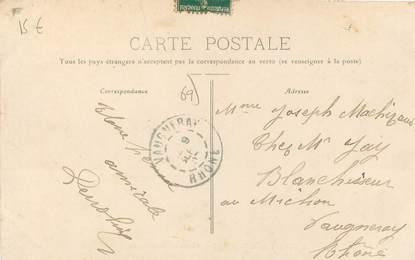 15 €
CARTE POSTALE
Tous les pays étrangers n'acceptent pas la correspondance au verso (se renseigner à la poste)
Correspondance
69
Adresse
VAUGNERAY
RHONE
amicale
Mme Joseph
Chez Mr Jay
Blanchisseur
au Michon
Vaugneray
Rhône